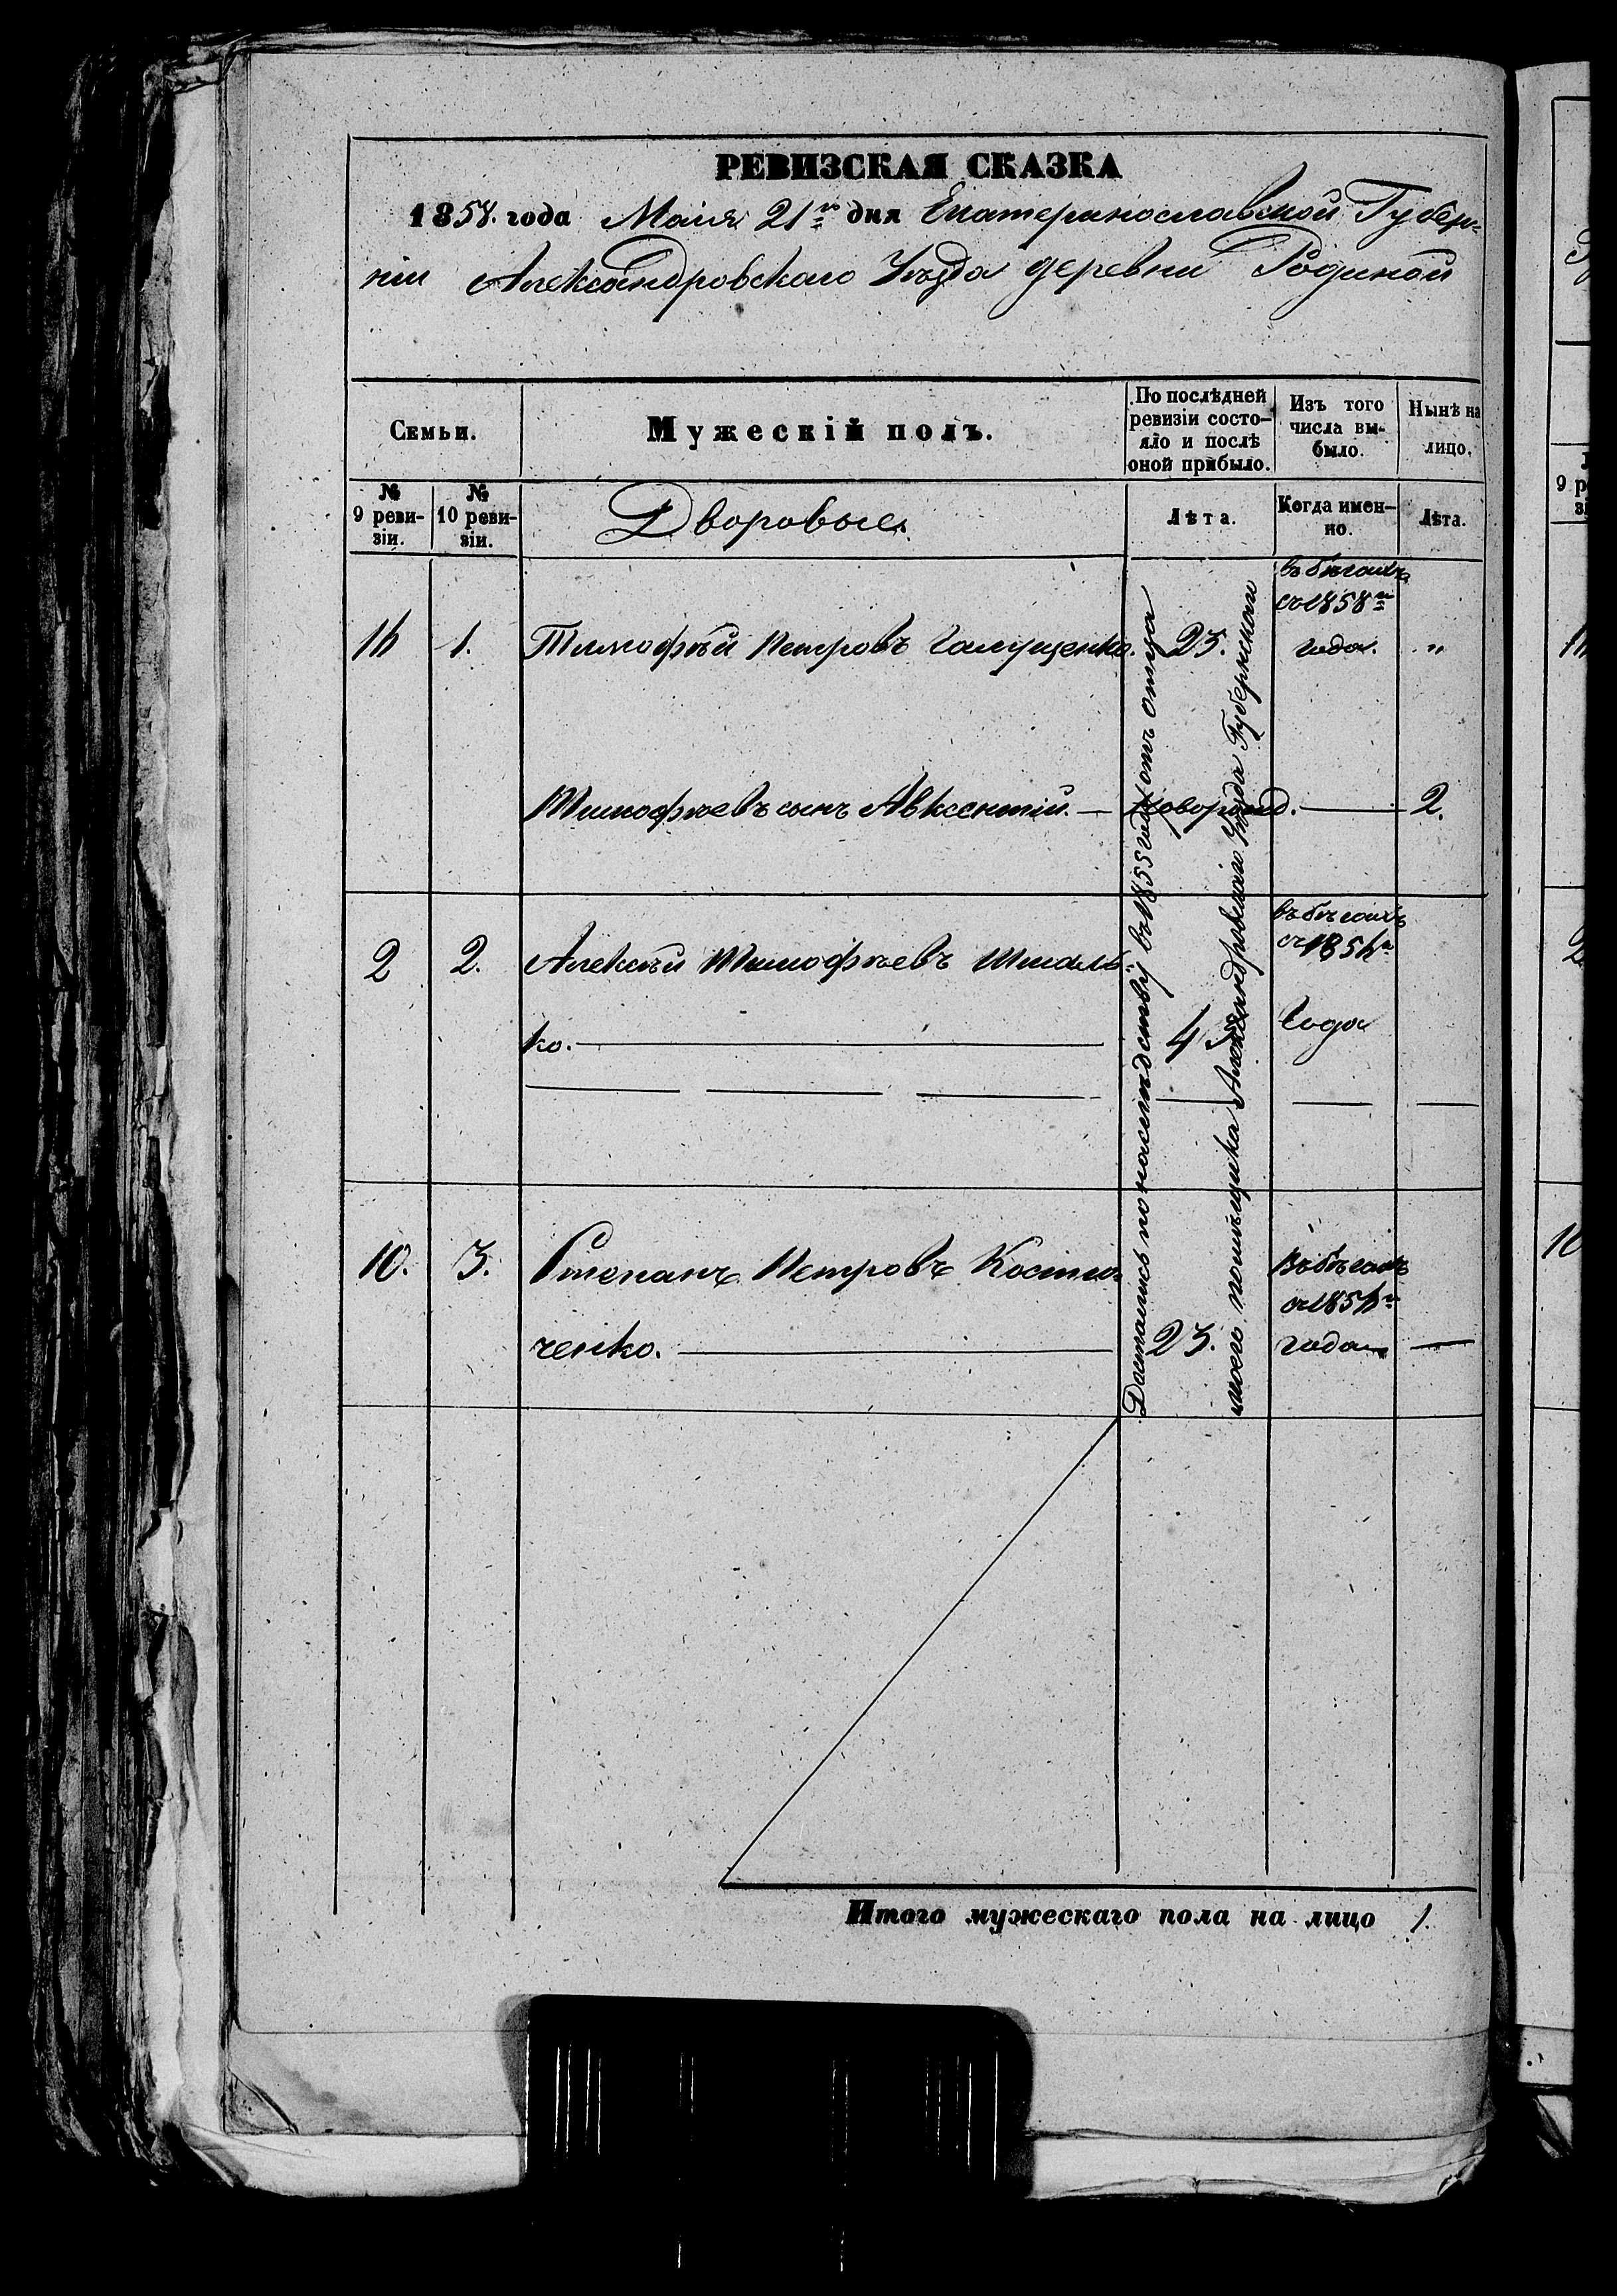 РЕВИЗСКАЯ СКАЗКА
1858. года Маія 21го дня Екатеринославской Губер-
ніи Александровскаго Уѣзда деревни Родиной
Семьи.
Мужескій полъ.
По послѣдней
ревизіи состо-
яло и послѣ
оной прибыло.
Изъ того
числа вы-
было.
Нынѣ на
лицо.
№
9 реви-
зіи.
№
10 реви-
зіи.
Дворовые.
Лѣта.
Когда имен-
но.
Лѣта.
въ бѣгахъ
съ 1858го
1. Тимофѣй Петровъ Галущенко. 23. года. "
Тимофѣевъ сынъ Авксентій. — новорожд. — 2.
въ бѣгахъ
2 2. Алексѣй Тимофѣевъ Шмаль-
съ 185
ко. — 43 года
10. 3. Степанъ Петровъ Костю-
ченко. — 23.
въ бѣгахъ
съ 185
года —
Достались по наслѣдству въ 1855 году отъ отца
моего помѣщика Александровскаго Уѣзда Губернскаго
Итого мужескаго пола на лицо 1.
9 ре
10